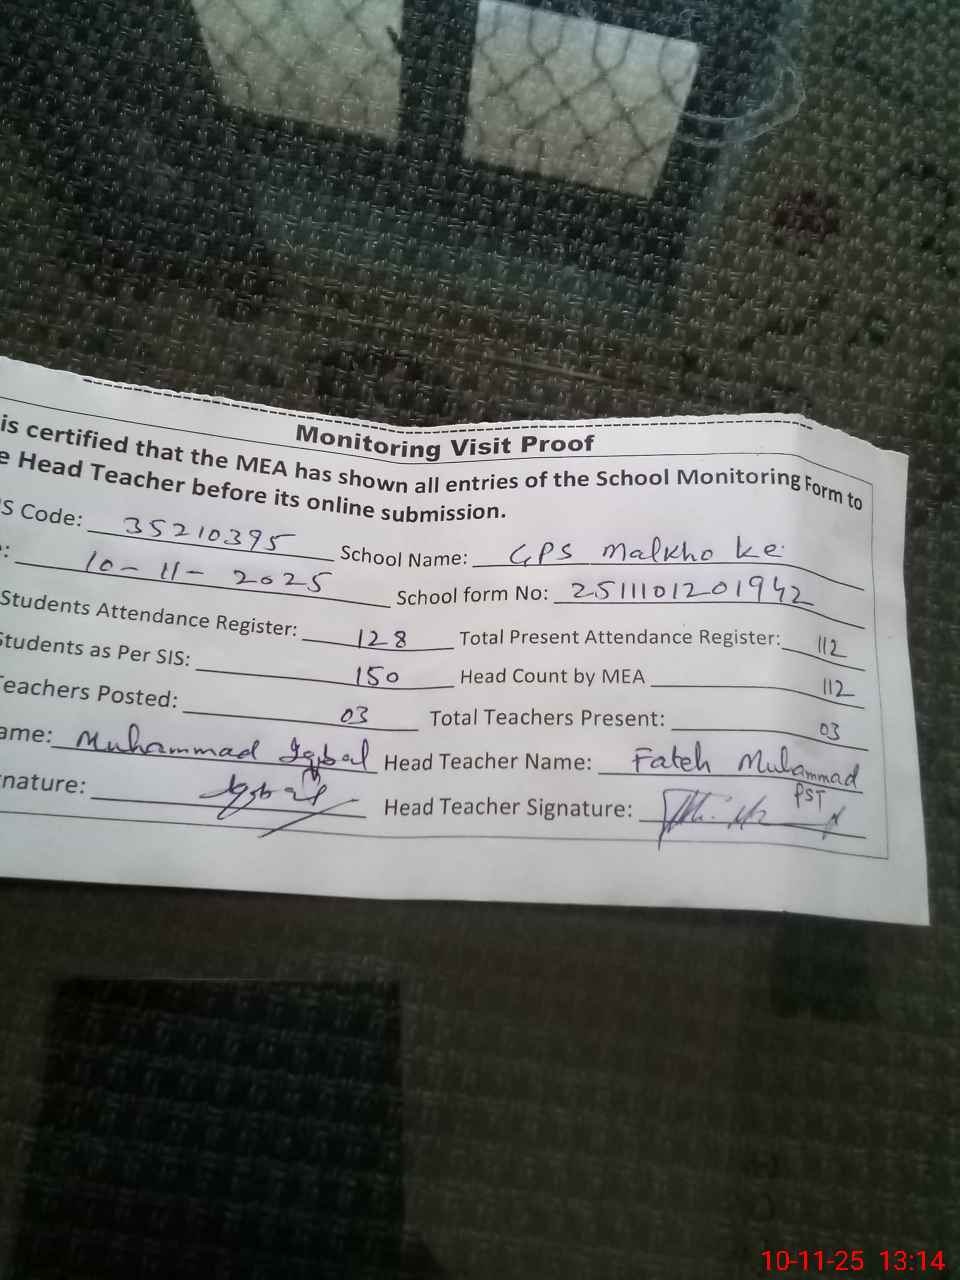 Monitoring Visit Proof
is certified that the MEA has shown all entries of the School Monitoring Form to
e Head Teacher before its online submission.
S Code: 35210395 School Name: GPS Malkho ke
: 10-11-2025 School form No: 2511101201942
Students Attendance Register: 128 Total Present Attendance Register: 112
Students as Per SIS: 150 Head Count by MEA 112
Teachers Posted: 03 Total Teachers Present: 03
ame: Muhammad Iqbal Head Teacher Name: Fateh Muhammad
PST
nature: Iqbal Head Teacher Signature:
10-11-25 13:14